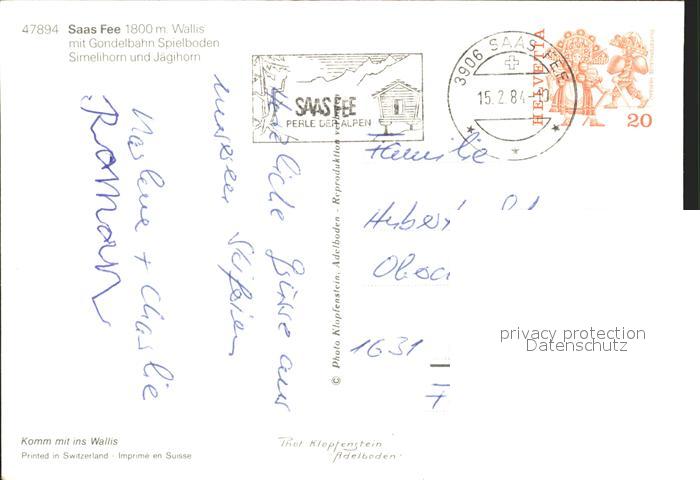 47894 Saas Fee 1800 m. Wallis
mit Gondelbahn Spielboden
Simelihorn und Jägihorn
SAAS FEE
PERLE DER ALPEN
3906 SAAS-FEE
15.2.84-10
HELVETIA
20
Herzliche Grüsse aus
unseren Skiferien
Marlene + Charlie
Roman
© Photo Klopfenstein, Adelboden - Reproduktion verboten
Familie
Hubert
1631
privacy protection
Datenschutz
Komm mit ins Wallis
Printed in Switzerland · Imprimé en Suisse
Phot. Klopfenstein
Adelboden